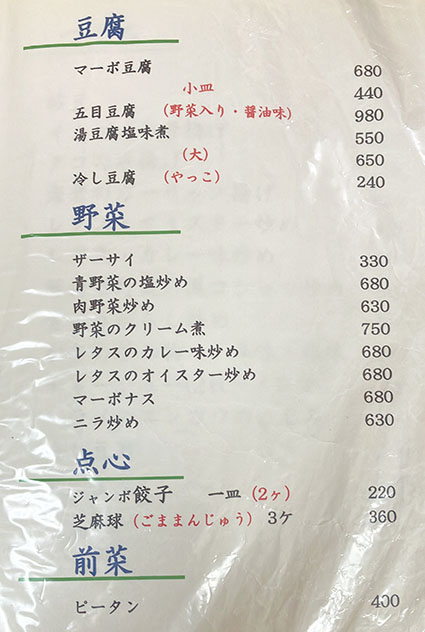 豆腐
マーボ豆腐 680
小皿 440
五目豆腐 (野菜入り・醤油味) 980
湯豆腐塩味煮 550
(大) 650
冷し豆腐 (やっこ) 240
野菜
ザーサイ 330
青野菜の塩炒め 680
肉野菜炒め 630
野菜のクリーム煮 750
レタスのカレー味炒め 680
レタスのオイスター炒め 680
マーボナス 680
ニラ炒め 630
点心
ジャンボ餃子 一皿(2ヶ) 220
芝麻球(ごままんじゅう) 3ケ 360
前菜
ピータン 400